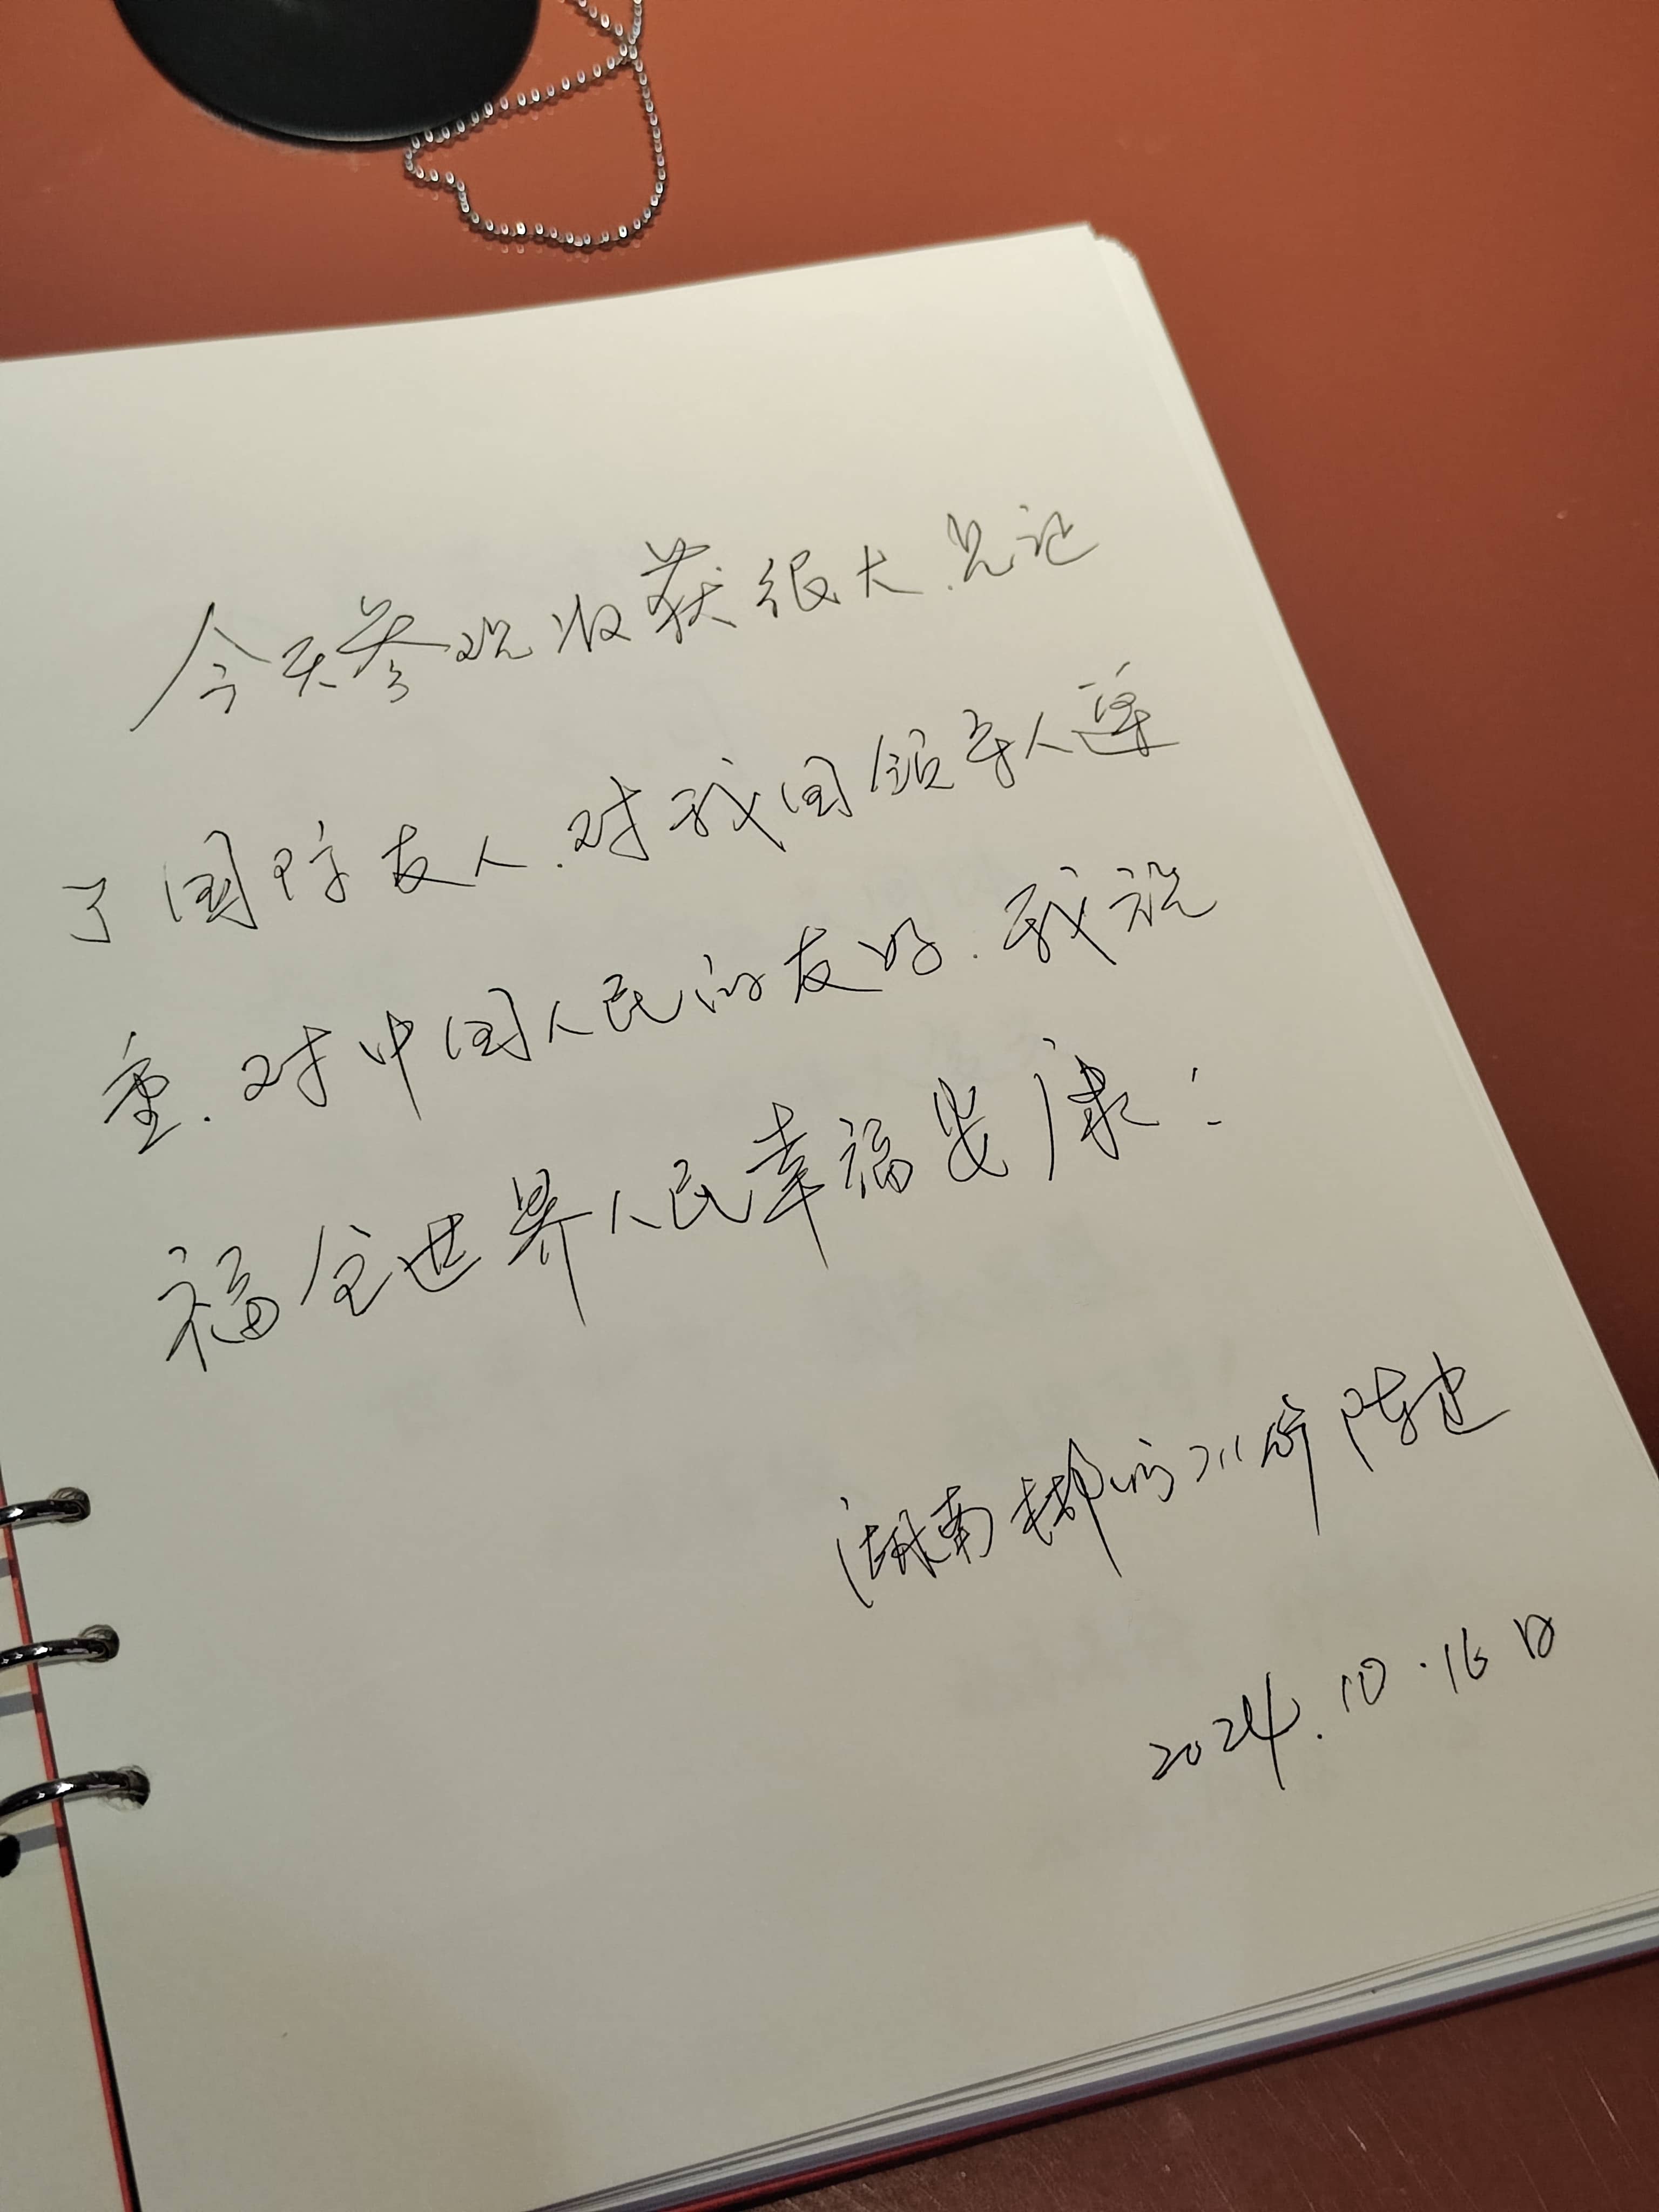 今天参观收获很大.见证
了国际友人.对我国领导人尊
重.对中国人民的友好.我祝
福全世界人民幸福安康!
湖南郴州 陈
2024.10.16日